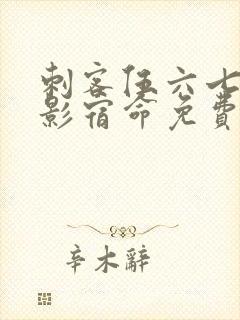 刺客伍六七
影宿命免费
辛木辭